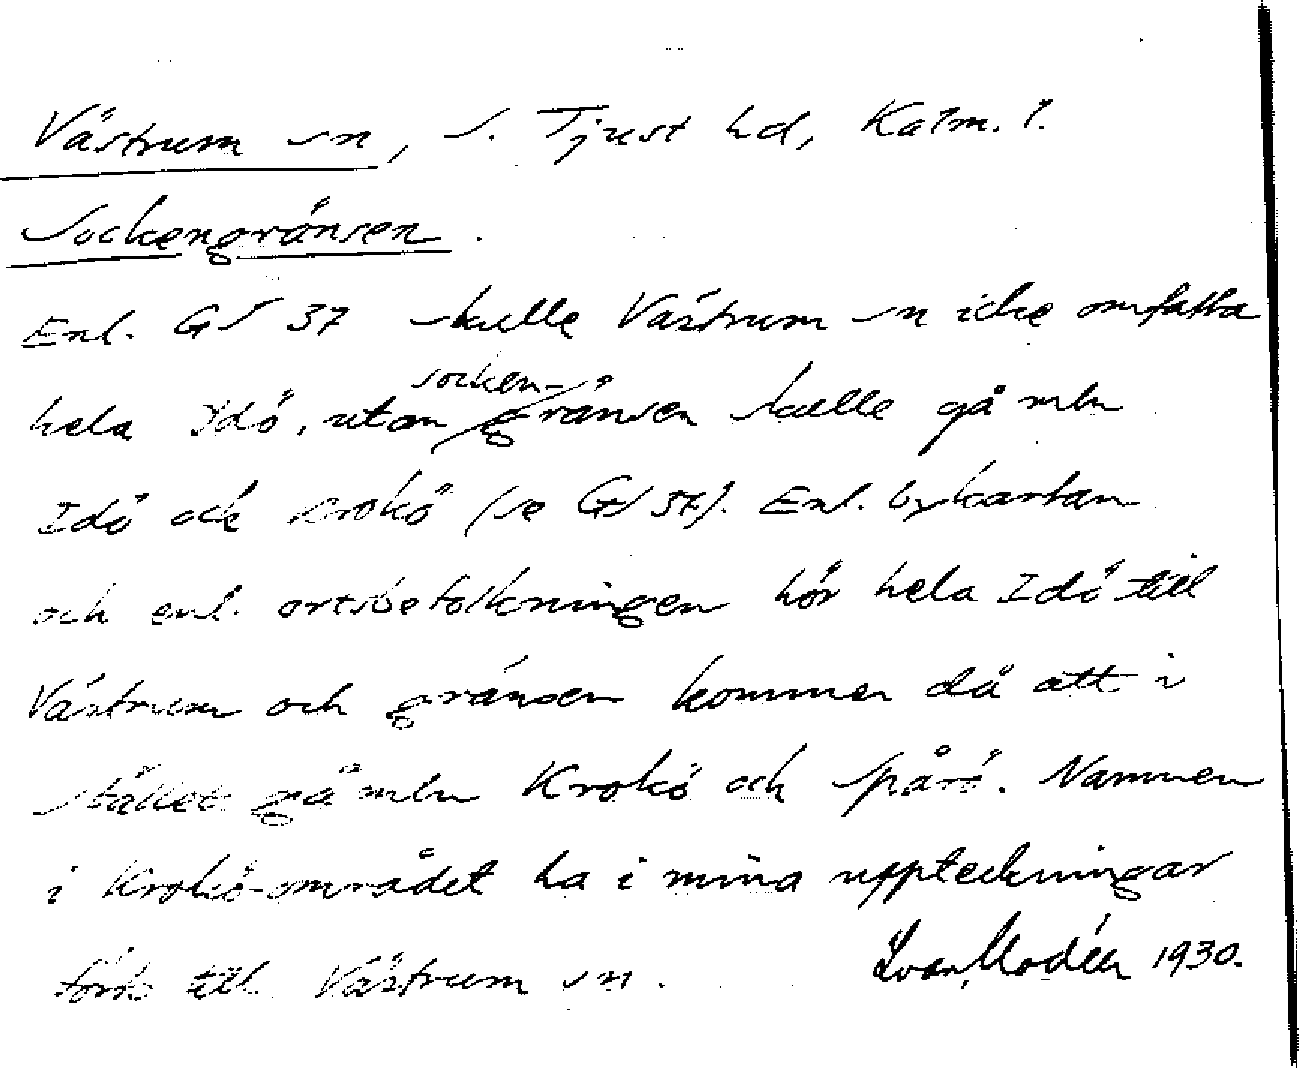 Västrum sn, S. Tjust hd, Kalm. l.
Sockengränsen.
Enl. GS 37 skulle Västrum sn icke omfatta
socken-
hela Idö, utan gränsen skulle gå mln
Idö och Krokö (se GS 37). Enl. bykartan
och enl. ortsbefolkningen hör hela Idö till
Västrum och gränsen kommer då att i
stället gå mln Krokö och Spårö. Namnen
i Krokö-området ha i mina uppteckningar
förts till Västrum sn.
Ivar Modéer 1930.